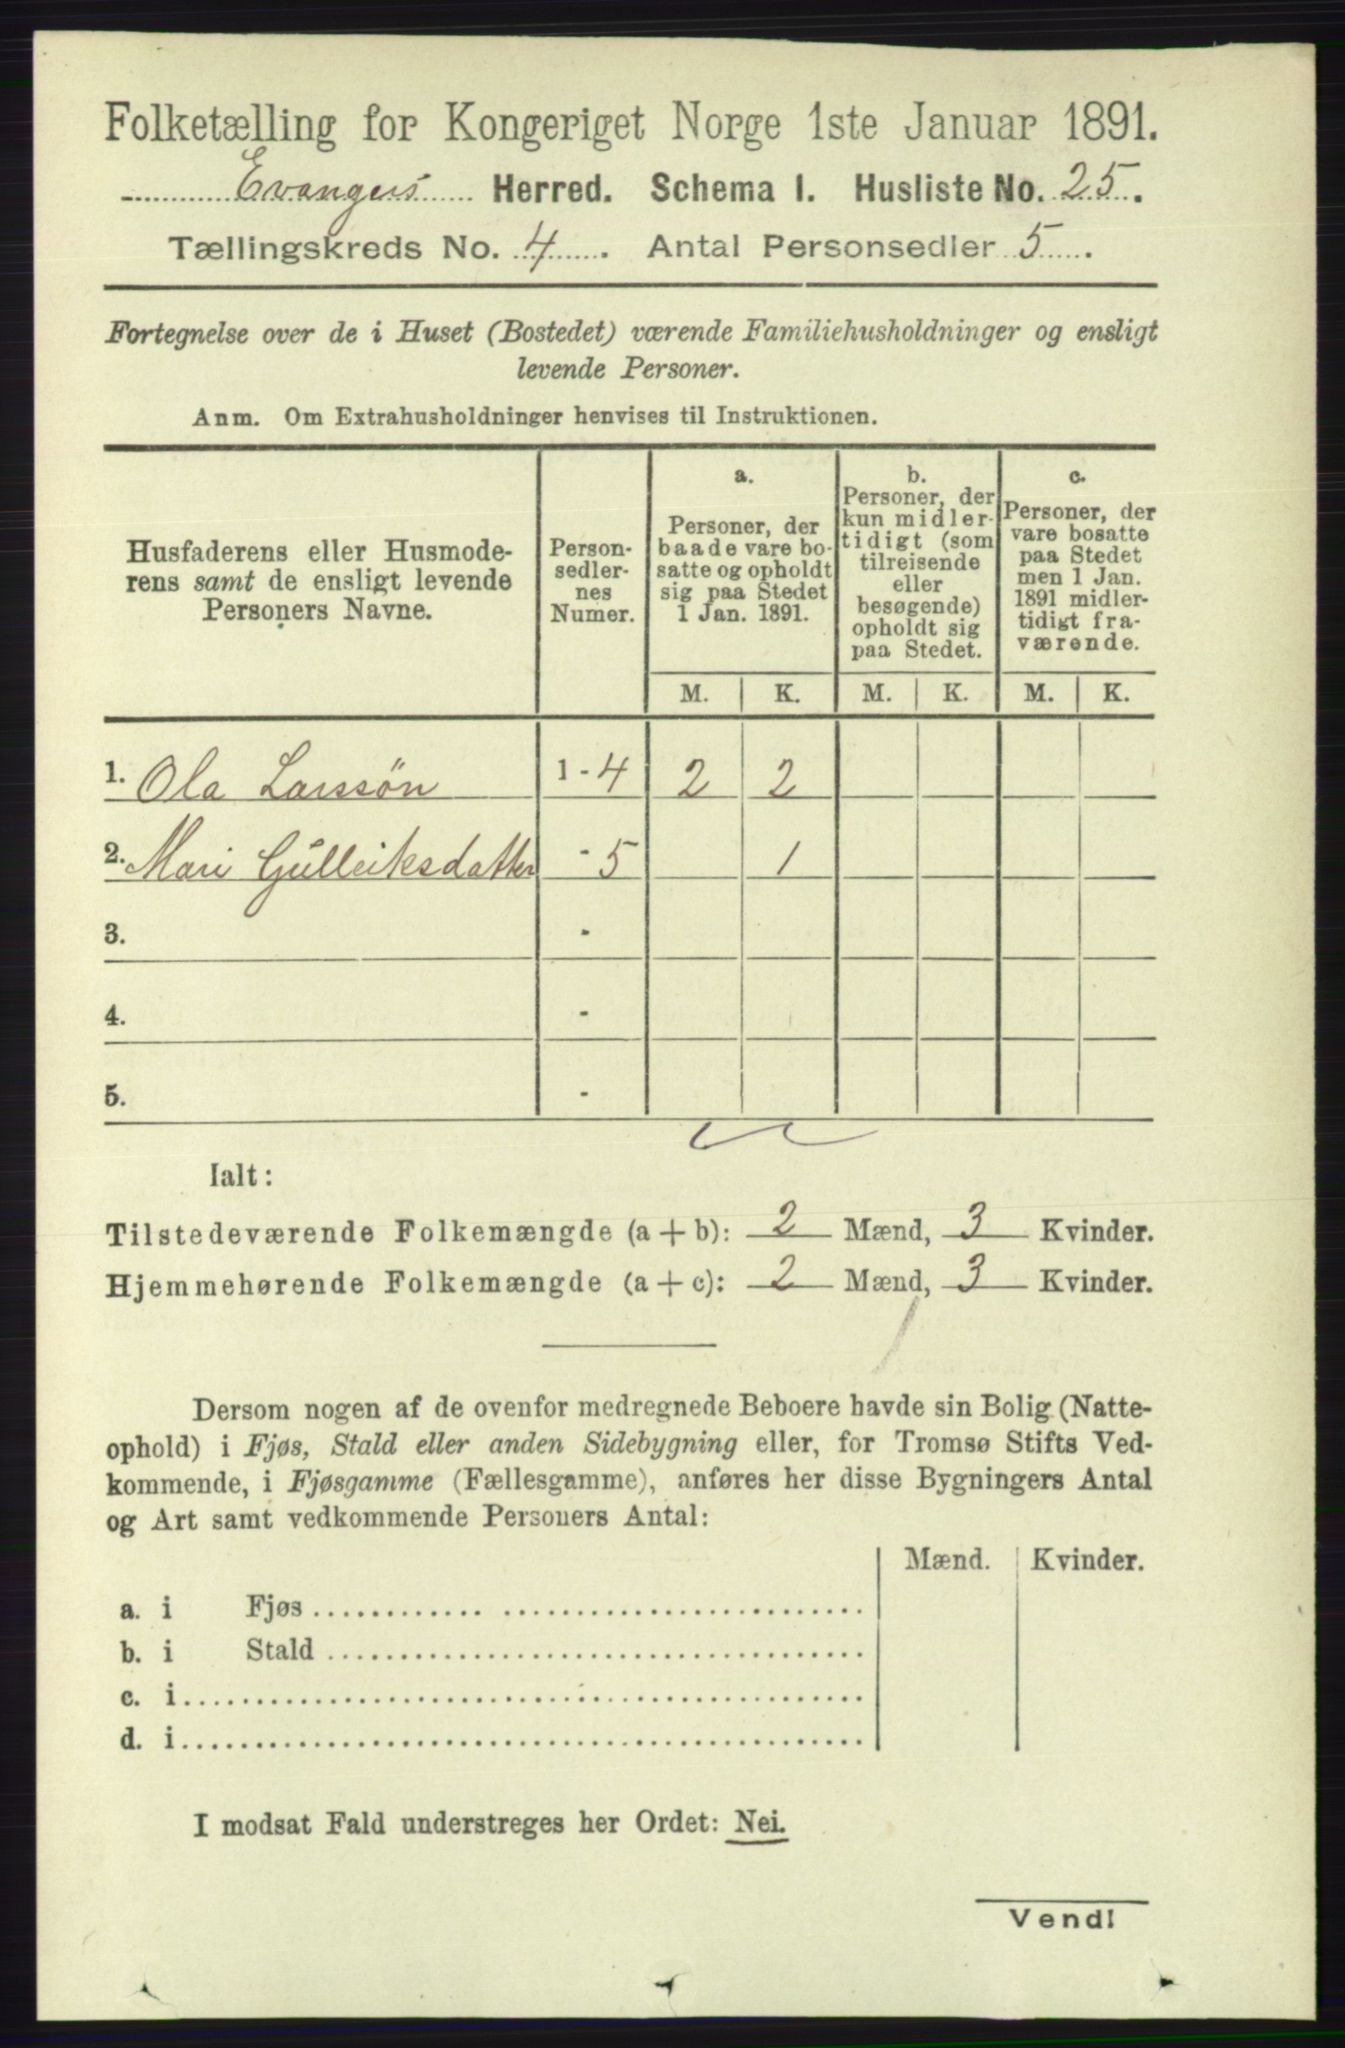 Folketælling for Kongeriget Norge 1ste Januar 1891.
Evangers Herred. Schema I. Husliste No. 25.
Tællingskreds No. 4. Antal Personsedler 5.
Fortegnelse over de i Huset (Bostedet) værende Familiehusholdninger og ensligt
levende Personer.
Anm. Om Extrahusholdninger henvises til Instruktionen.
Husfaderens eller Husmode-
rens samt de ensligt levende
Personers Navne.
Person-
sedler-
nes
Numer.
a.
Personer, der
baade vare bo-
satte og opholdt
sig paa Stedet
1 Jan. 1891.
b.
Personer, der
kun midler-
tidigt (som
tilreisende
eller
besøgende)
opholdt sig
paa Stedet.
c.
Personer, der
vare bosatte
paa Stedet
men 1 Jan.
1891 midler-
tidigt fra-
værende.
M. K. M. K. M. K.
1. Ola Larssön 1 - 4 2 2
2. Mari Gulleiksdatter - 5 1
3. -
4. -
5. -
Ialt:
Tilstedeværende Folkemængde (a + b): 2 Mænd, 3 Kvinder.
Hjemmehørende Folkemængde (a + c): 2 Mænd, 3 Kvinder.
Dersom nogen af de ovenfor medregnede Beboere havde sin Bolig (Natte-
ophold) i Fjøs, Stald eller anden Sidebygning eller, for Tromsø Stifts Ved-
kommende, i Fjøsgamme (Fællesgamme), anføres her disse Bygningers Antal
og Art samt vedkommende Personers Antal:
Mænd. Kvinder.
a. i Fjøs
b. i Stald
c. i
d. i
I modsat Fald understreges her Ordet: Nei.
Vend!